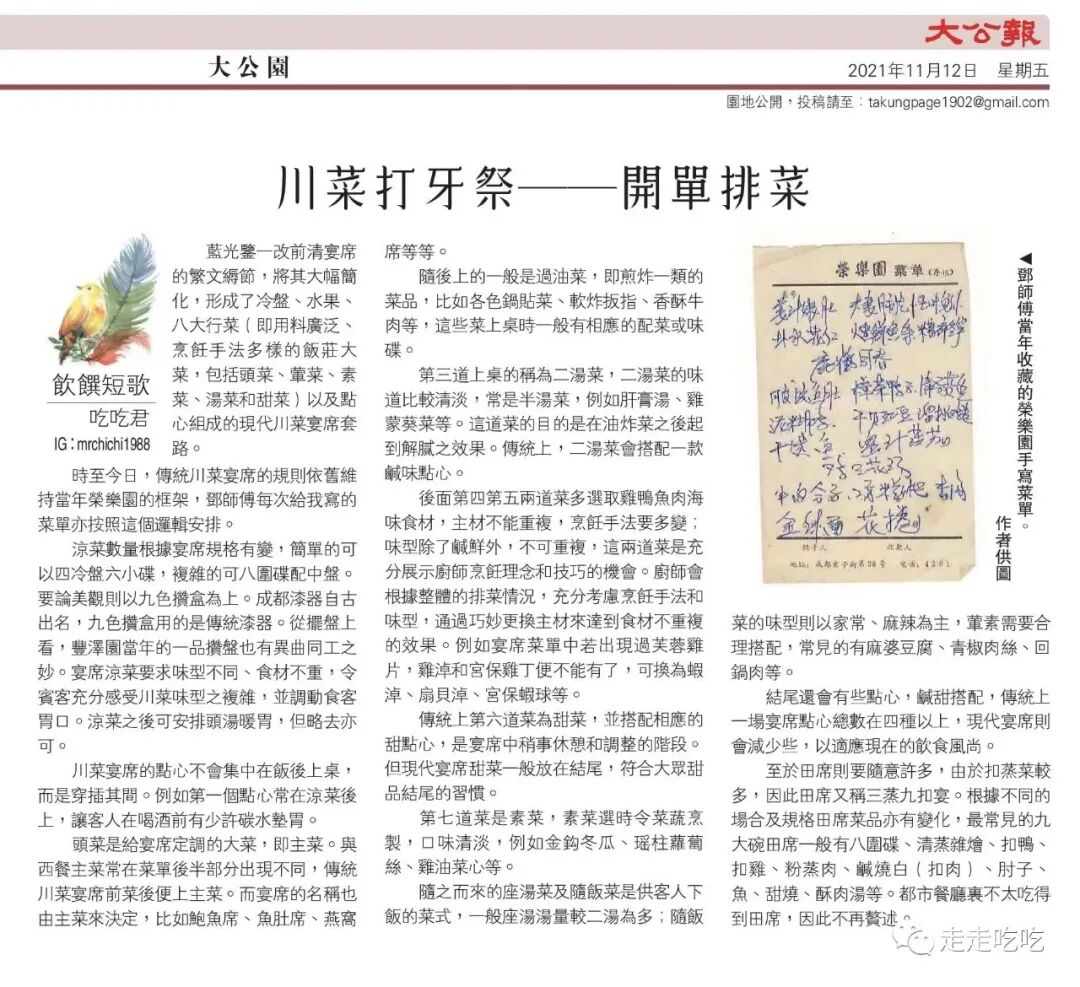 大公報
大公園
2021年11月12日 星期五
園地公開，投稿請至：takungpage1902@gmail.com
川菜打牙祭——開單排菜
飲饌短歌
吃吃君
IG：mrchichi1988
藍光鑒一改前清宴席
的繁文縟節，將其大幅簡
化，形成了冷盤、水果、
八大行菜（即用料廣泛、
烹飪手法多樣的飯莊大
菜，包括頭菜、葷菜、素
菜、湯菜和甜菜）以及點
心組成的現代川菜宴席套
路。
時至今日，傳統川菜宴席的規則依舊維
持當年榮樂園的框架，鄧師傅每次給我寫的
菜單亦按照這個邏輯安排。
涼菜數量根據宴席規格有變，簡單的可
以四冷盤六小碟，複雜的可八圍碟配中盤。
要論美觀則以九色攢盒為上。成都漆器自古
出名，九色攢盒用的是傳統漆器。從擺盤上
看，豐澤園當年的一品攢盤也有異曲同工之
妙。宴席涼菜要求味型不同、食材不重，令
賓客充分感受川菜味型之複雜，並調動食客
胃口。涼菜之後可安排頭湯暖胃，但略去亦
可。
川菜宴席的點心不會集中在飯後上桌，
而是穿插其間。例如第一個點心常在涼菜後
上，讓客人在喝酒前有少許碳水墊胃。
頭菜是給宴席定調的大菜，即主菜。與
西餐主菜常在菜單後半部分出現不同，傳統
川菜宴席前菜後便上主菜。而宴席的名稱也
由主菜來決定，比如鮑魚席、魚肚席、燕窩
席等等。
隨後上的一般是過油菜，即煎炸一類的
菜品，比如各色鍋貼菜、軟炸扳指、香酥牛
肉等，這些菜上桌時一般有相應的配菜或味
碟。
第三道上桌的稱為二湯菜，二湯菜的味
道比較清淡，常是半湯菜，例如肝膏湯、雞
蒙葵菜等。這道菜的目的是在油炸菜之後起
到解膩之效果。傳統上，二湯菜會搭配一款
鹹味點心。
後面第四第五兩道菜多選取雞鴨魚肉海
味食材，主材不能重複，烹飪手法要多變；
味型除了鹹鮮外，不可重複，這兩道菜是充
分展示廚師烹飪理念和技巧的機會。廚師會
根據整體的排菜情況，充分考慮烹飪手法和
味型，通過巧妙更換主材來達到食材不重複
的效果。例如宴席菜單中若出現過芙蓉雞
片，雞淖和宮保雞丁便不能有了，可換為蝦
淖、扇貝淖、宮保蝦球等。
傳統上第六道菜為甜菜，並搭配相應的
甜點心，是宴席中稍事休憩和調整的階段。
但現代宴席甜菜一般放在結尾，符合大眾甜
品結尾的習慣。
第七道菜是素菜，素菜選時令菜蔬烹
製，口味清淡，例如金鈎冬瓜、瑶柱蘿蔔
絲、雞油菜心等。
隨之而來的座湯菜及隨飯菜是供客人下
飯的菜式，一般座湯湯量較二湯為多；隨飯
榮樂園 菜單
地址：成都
電話：4261
◀鄧師傅當年收藏的榮樂園手寫菜單。
作者供圖
菜的味型則以家常、麻辣為主，葷素需要合
理搭配，常見的有麻婆豆腐、青椒肉絲、回
鍋肉等。
結尾還會有些點心，鹹甜搭配，傳統上
一場宴席點心總數在四種以上，現代宴席則
會減少些，以適應現在的飲食風尚。
至於田席則要隨意許多，由於扣蒸菜較
多，因此田席又稱三蒸九扣宴。根據不同的
場合及規格田席菜品亦有變化，最常見的九
大碗田席一般有八圍碟、清蒸雜燴、扣鴨、
扣雞、粉蒸肉、鹹燒白（扣肉）、肘子、
魚、甜燒、酥肉湯等。都市餐廳裏不太吃得
到田席，因此不再贅述。
走走吃吃